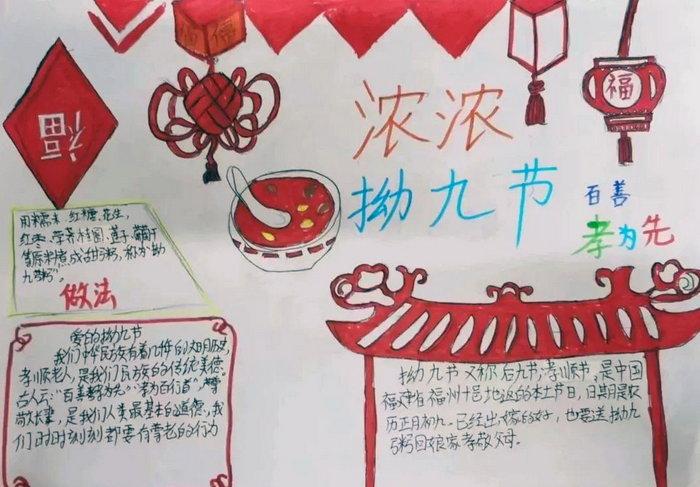 福
福
浓浓
拗九节
百善
孝为先
用糯米、红糖、花生,
红枣、荸荠、桂圆、莲子、葡萄干
等原料煮成甜粥,称为"拗
九粥"
做法
爱的拗九节
我们中华民族有着几千年的文明历史,
孝顺老人,是我们民族的传统美德。
古人云:"百善孝为先""孝为百行首"
敬长辈,是我们人类最基本的道德,我
们时时刻刻都要有尊老的行为
拗九节又称后九节、孝顺节,是中国
福建省福州十邑地区的本土节日,日期是农
历正月初九。已经出嫁的女儿,也要送拗九
粥回娘家孝敬父母。